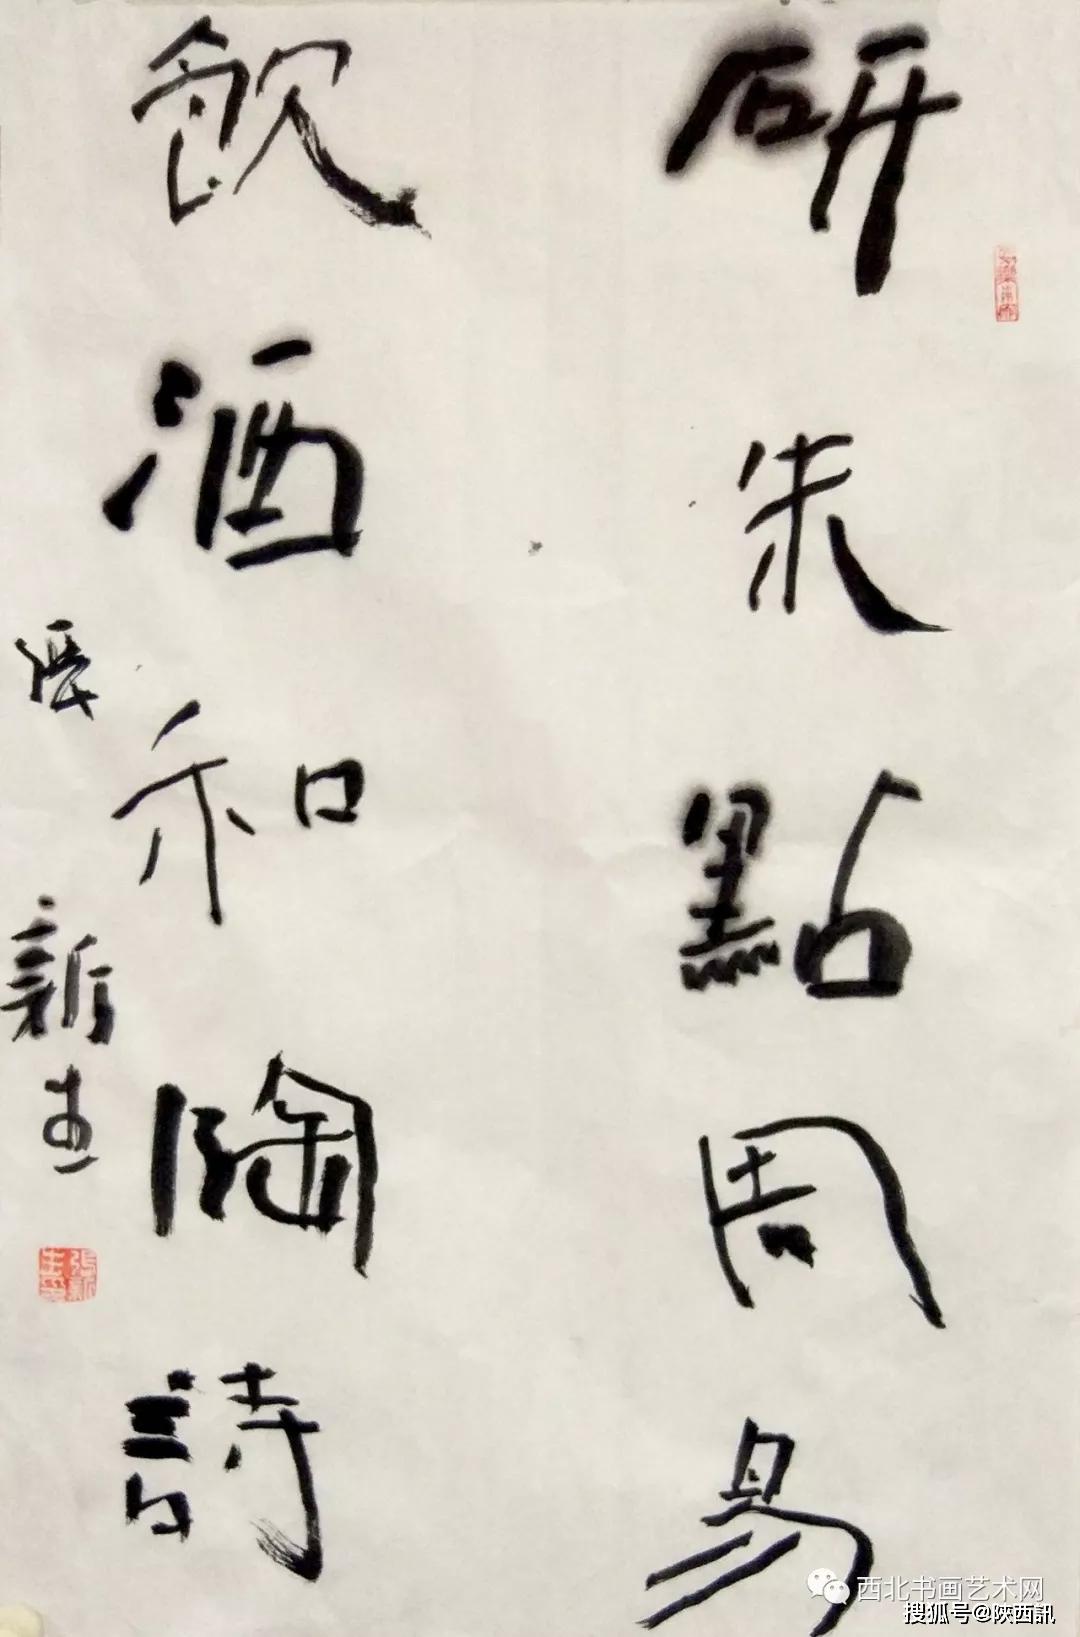 研朱點周易
飲酒和陶詩
張新生
西北书画艺术网
搜狐号@陕西訊